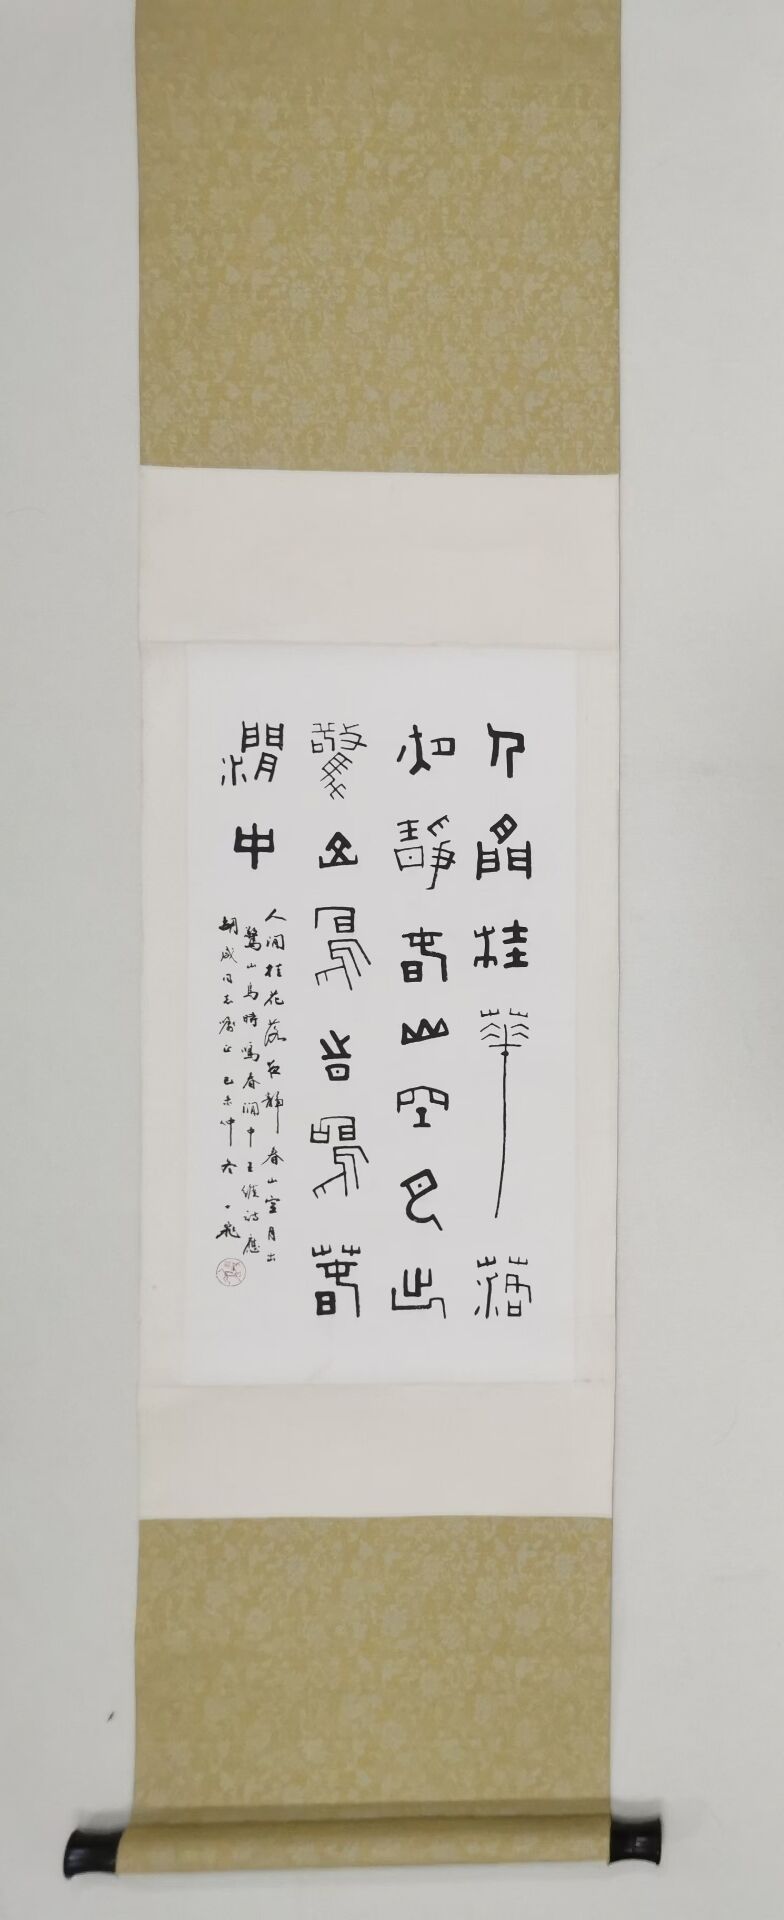 人閒桂華落
夜靜春山空月出
驚山鳥時鳴春
澗中
人閒桂花落夜靜春山空月出
驚山鳥時鳴春澗中王維詩應
成同志屬正己未仲冬一飛